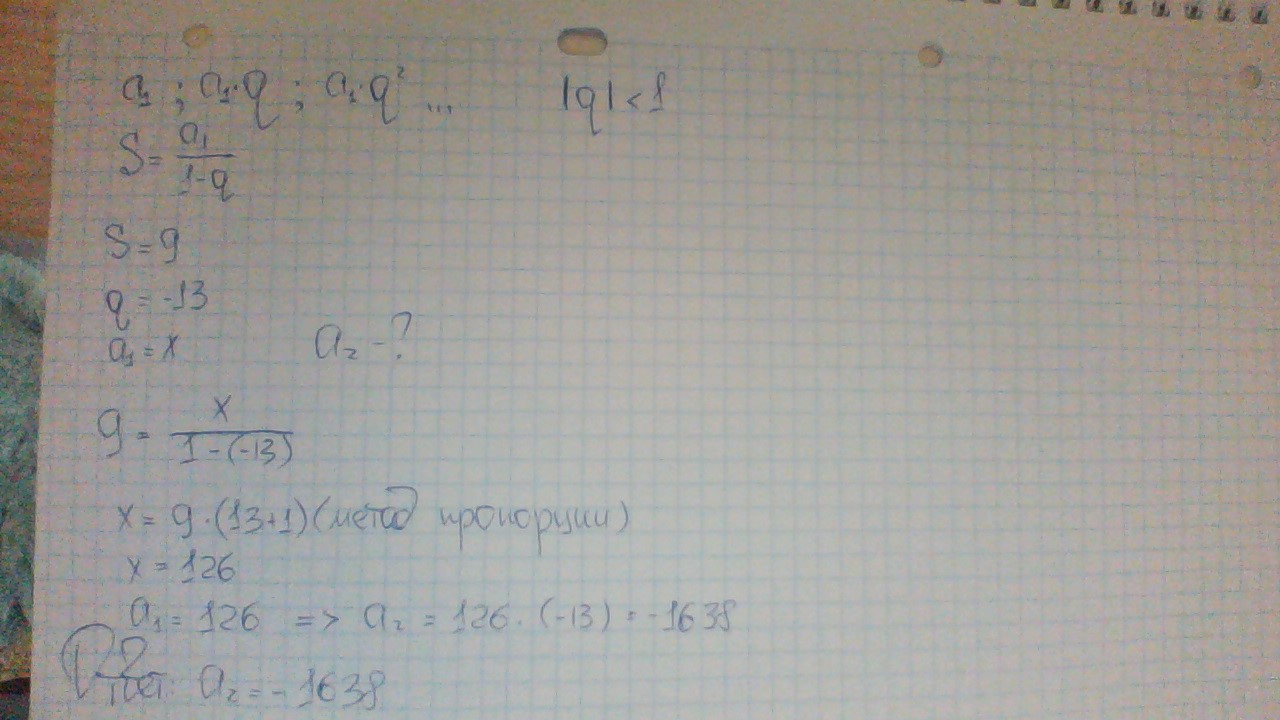 a₁ ; a₁·q ; a₁·q² ... |q| < 1
S = a₁/(1-q)
S = 9
q = -13
a₁ = x a₂ - ?
9 = x/(1-(-13))
x = 9·(13+1) (метод пропорции)
x = 126
a₁ = 126 => a₂ = 126·(-13) = -1638
Ответ: a₂ = -1638